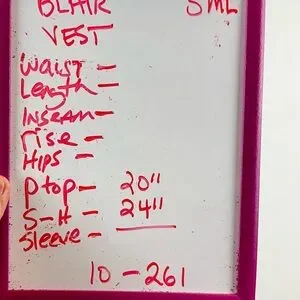 BLAIR SML
VEST
Waist -
Length -
Inseam -
rise -
Hips -
Ptop - 20"
S-H - 24"
Sleeve -
10-261